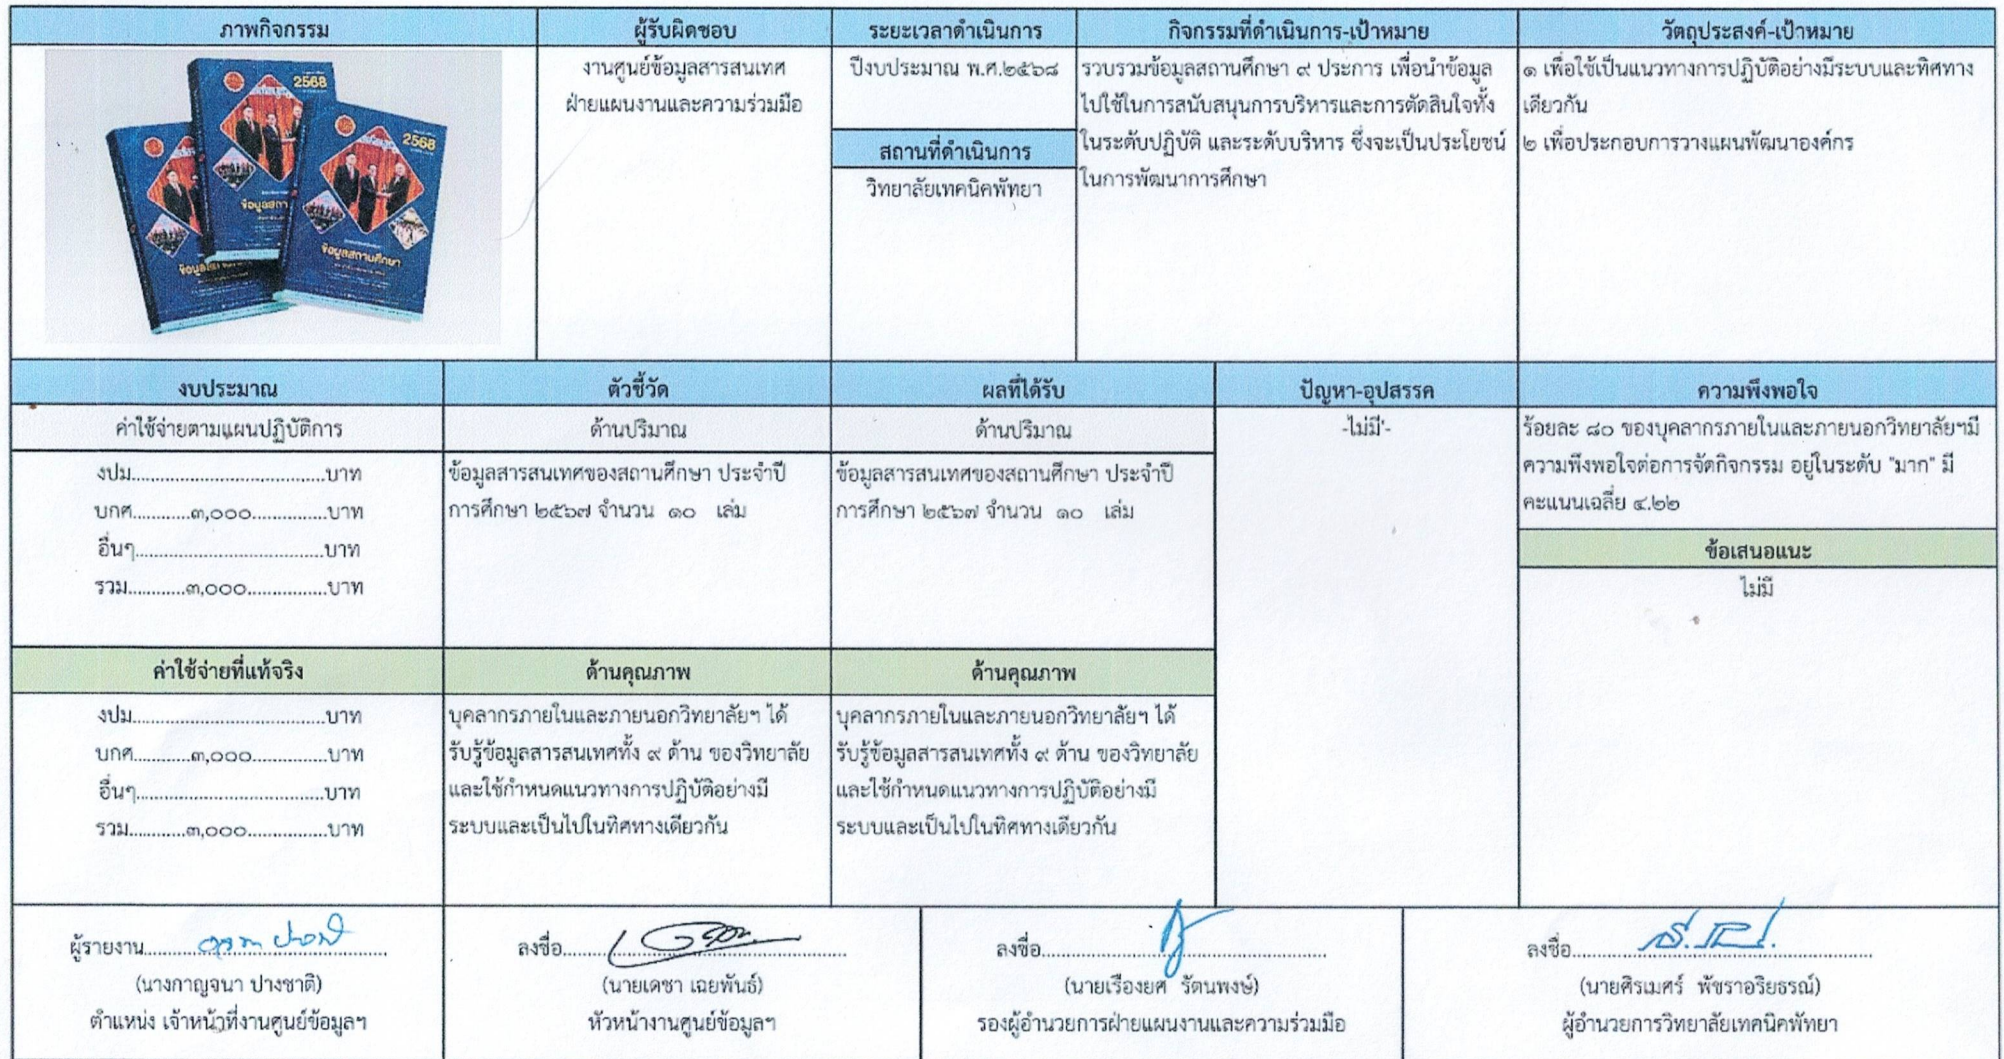 ภาพกิจกรรม
ผู้รับผิดชอบ
ระยะเวลาดำเนินการ
กิจกรรมที่ดำเนินการ-เป้าหมาย
วัตถุประสงค์-เป้าหมาย
2568
2568
ข้อมูลสถานศึกษา
งานศูนย์ข้อมูลสารสนเทศ
ฝ่ายแผนงานและความร่วมมือ
ปีงบประมาณ พ.ศ.๒๕๖๘
สถานที่ดำเนินการ
วิทยาลัยเทคนิคพัทยา
รวบรวมข้อมูลสถานศึกษา ๙ ประการ เพื่อนำข้อมูล
ไปใช้ในการสนับสนุนการบริหารและการตัดสินใจทั้ง
ในระดับปฏิบัติ และระดับบริหาร ซึ่งจะเป็นประโยชน์
ในการพัฒนาการศึกษา
๑ เพื่อใช้เป็นแนวทางการปฏิบัติอย่างมีระบบและทิศทาง
เดียวกัน
๒ เพื่อประกอบการวางแผนพัฒนาองค์กร
งบประมาณ
ตัวชี้วัด
ผลที่ได้รับ
ปัญหา-อุปสรรค
ความพึงพอใจ
ค่าใช้จ่ายตามแผนปฏิบัติการ
งปม..................................บาท
บกศ..........๓,๐๐๐..............บาท
อื่นๆ.................................บาท
รวม..........๓,๐๐๐..............บาท
ด้านปริมาณ
ข้อมูลสารสนเทศของสถานศึกษา ประจำปี
การศึกษา ๒๕๖๗ จำนวน ๑๐ เล่ม
ด้านปริมาณ
ข้อมูลสารสนเทศของสถานศึกษา ประจำปี
การศึกษา ๒๕๖๗ จำนวน ๑๐ เล่ม
-ไม่มี'-
ร้อยละ ๘๐ ของบุคลากรภายในและภายนอกวิทยาลัยฯมี
ความพึงพอใจต่อการจัดกิจกรรม อยู่ในระดับ "มาก" มี
คะแนนเฉลี่ย ๔.๒๒
ข้อเสนอแนะ
ไม่มี
ค่าใช้จ่ายที่แท้จริง
งปม..................................บาท
บกศ..........๓,๐๐๐.............บาท
อื่นๆ.................................บาท
รวม..........๓,๐๐๐..............บาท
ด้านคุณภาพ
บุคลากรภายในและภายนอกวิทยาลัยฯ ได้
รับรู้ข้อมูลสารสนเทศทั้ง ๙ ด้าน ของวิทยาลัย
และใช้กำหนดแนวทางการปฏิบัติอย่างมี
ระบบและเป็นไปในทิศทางเดียวกัน
ด้านคุณภาพ
บุคลากรภายในและภายนอกวิทยาลัยฯ ได้
รับรู้ข้อมูลสารสนเทศทั้ง ๙ ด้าน ของวิทยาลัย
และใช้กำหนดแนวทางการปฏิบัติอย่างมี
ระบบและเป็นไปในทิศทางเดียวกัน
ผู้รายงาน..........................................
(นางกาญจนา ปางชาติ)
ตำแหน่ง เจ้าหน้าที่งานศูนย์ข้อมูลฯ
ลงชื่อ..................................................
(นายเดชา เฉยพันธ์)
หัวหน้างานศูนย์ข้อมูลฯ
ลงชื่อ..................................................
(นายเรืองยศ รัตนพงษ์)
รองผู้อำนวยการฝ่ายแผนงานและความร่วมมือ
ลงชื่อ..................................................
(นายศิรเมศร์ พัชราอริยธรณ์)
ผู้อำนวยการวิทยาลัยเทคนิคพัทยา